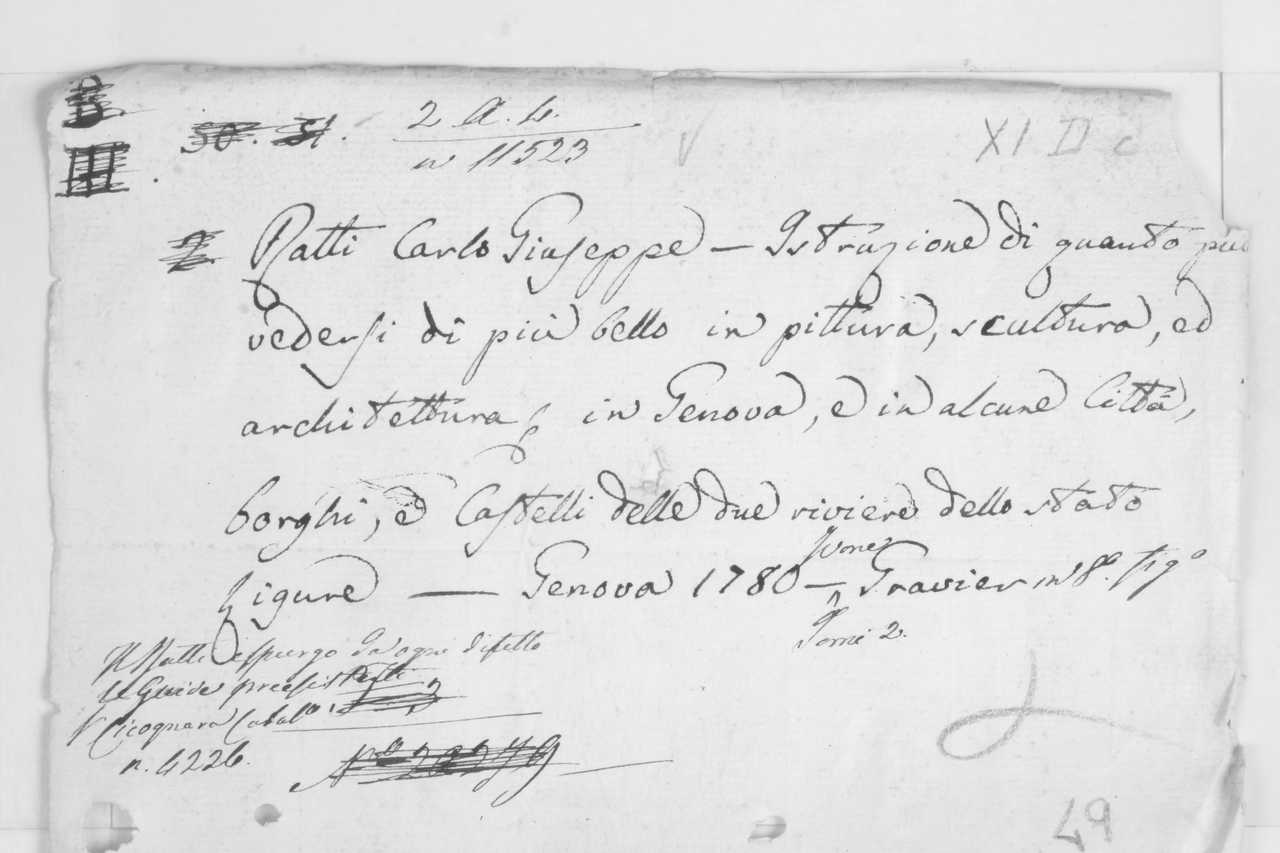 2 A. 4.
n 11523
XI D c
Ratti Carlo Giuseppe — Istruzione di quanto può
vedersi di più bello in pittura, scultura, ed
architettura, in Genova, e in alcune Città,
borghi, e Castelli delle due riviere dello stato
ligure — Genova 1780 — Ivone Gravier in 8º. figº
Tomi 2.
Il Ratti espurgo da ogni difetto
le Guide preesistenti
V Cicognara Catalº
n. 4226.
49